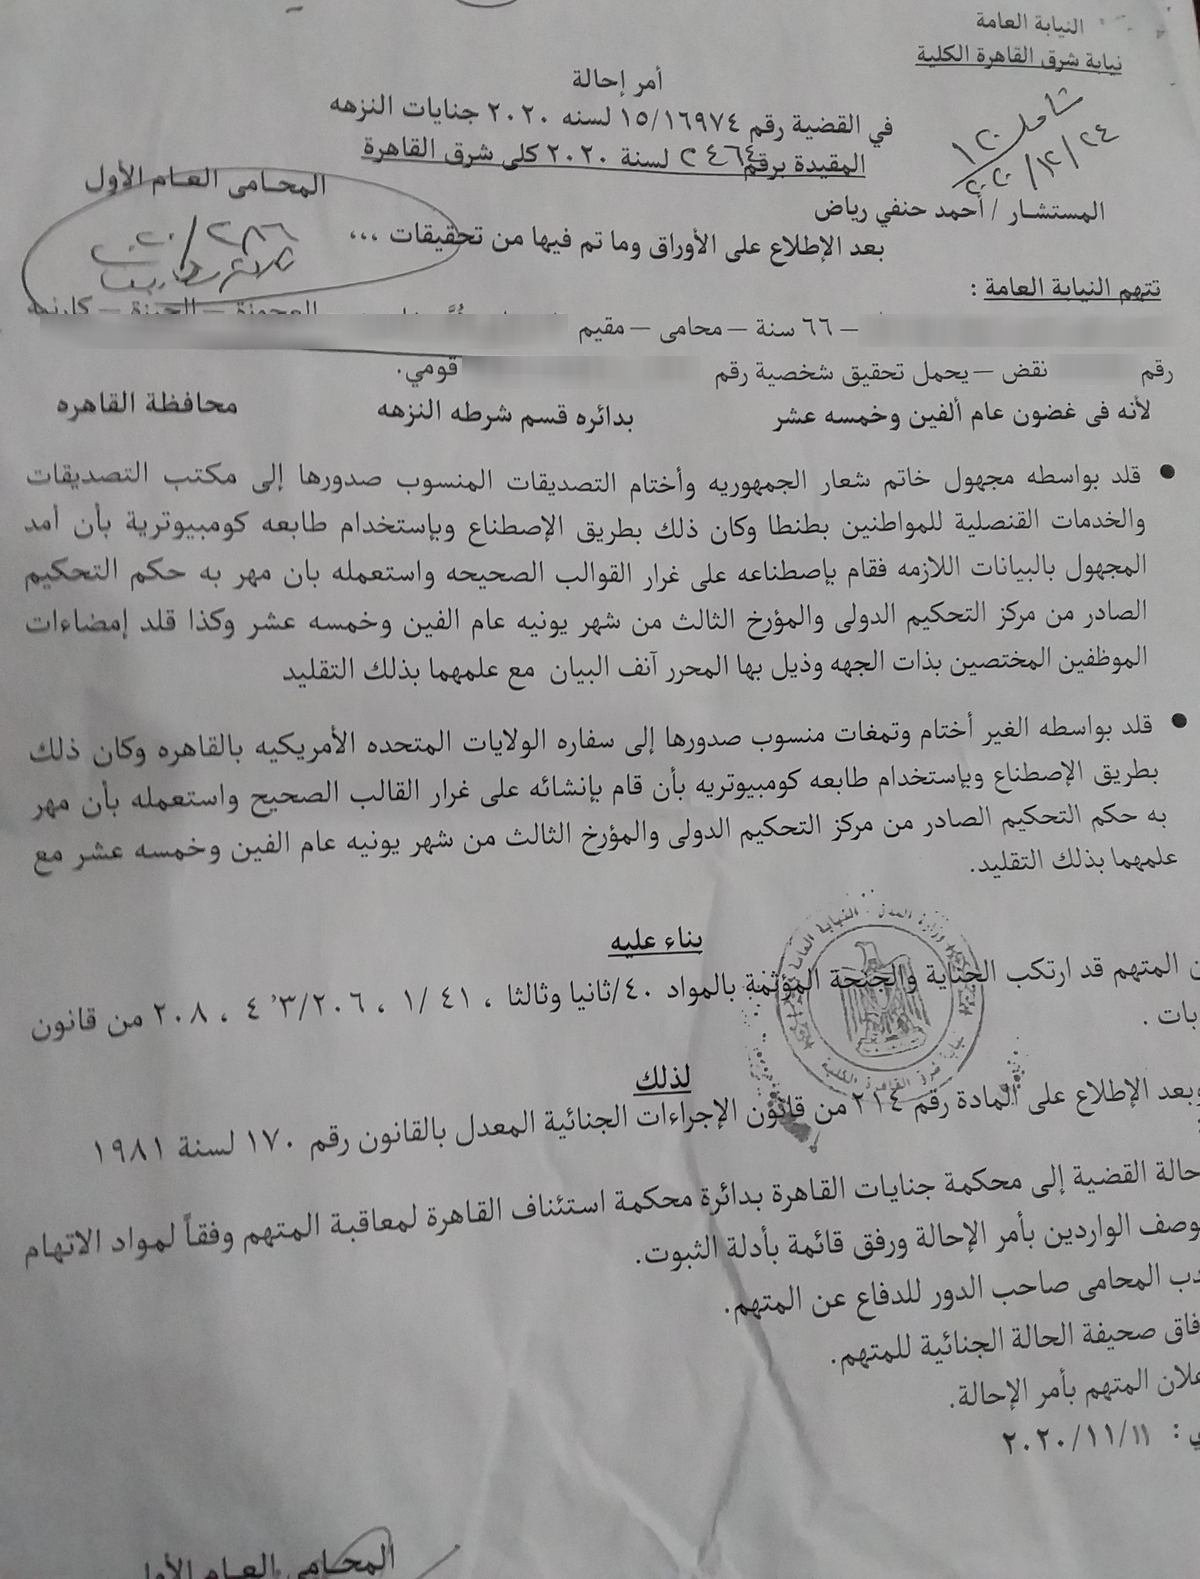 النيابة العامة
نيابة شرق القاهرة الكلية
أمر إحالة
في القضية رقم ١٥/١٦٩٧٤ لسنه ٢٠٢٠ جنايات النزهه
المقيدة برقم ٤٦٤ لسنة ٢٠٢٠ كلى شرق القاهرة
٢٤/١٢/٢٠٢٠
المحامى العام الأول
المستشار / أحمد حنفي رياض
بعد الإطلاع على الأوراق وما تم فيها من تحقيقات ...
٢٨٦
تتهم النيابة العامة :
العجوزة – الجيزة –
– ٦٦ سنة – محامى – مقيم
رقم نقض – يحمل تحقيق شخصية رقم قومي.
لأنه فى غضون عام ألفين وخمسه عشر بدائره قسم شرطه النزهه محافظة القاهره
● قلد بواسطه مجهول خاتم شعار الجمهوريه وأختام التصديقات المنسوب صدورها إلى مكتب التصديقات
والخدمات القنصلية للمواطنين بطنطا وكان ذلك بطريق الإصطناع وبإستخدام طابعه كومبيوترية بأن أمد
المجهول بالبيانات اللازمه فقام بإصطناعه على غرار القوالب الصحيحه واستعمله بان مهر به حكم التحكيم
الصادر من مركز التحكيم الدولى والمؤرخ الثالث من شهر يونيه عام الفين وخمسه عشر وكذا قلد إمضاءات
الموظفين المختصين بذات الجهه وذيل بها المحرر آنف البيان مع علمهما بذلك التقليد
● قلد بواسطه الغير أختام وتمغات منسوب صدورها إلى سفاره الولايات المتحده الأمريكيه بالقاهره وكان ذلك
بطريق الإصطناع وبإستخدام طابعه كومبيوتريه بأن قام بإنشائه على غرار القالب الصحيح واستعمله بأن مهر
به حكم التحكيم الصادر من مركز التحكيم الدولى والمؤرخ الثالث من شهر يونيه عام الفين وخمسه عشر مع
علمهما بذلك التقليد.
بناء عليه
ن المتهم قد ارتكب الجناية والجنحة المؤثمة بالمواد ٤٠/ثانيا وثالثا ، ٤١ /١ ، ٣/٢٠٦، ٤ ، ٢٠٨ من قانون
بات .
وزارة العدل النيابة العامة
نيابة شرق القاهرة الكلية
لذلك
وبعد الإطلاع على المادة رقم ٢١٤ من قانون الإجراءات الجنائية المعدل بالقانون رقم ١٧٠ لسنة ١٩٨١
حالة القضية إلى محكمة جنايات القاهرة بدائرة محكمة استئناف القاهرة لمعاقبة المتهم وفقاً لمواد الاتهام
وصف الواردين بأمر الإحالة ورفق قائمة بأدلة الثبوت.
دب المحامى صاحب الدور للدفاع عن المتهم.
فاق صحيفة الحالة الجنائية للمتهم.
علان المتهم بأمر الإحالة.
ي : ٢٠٢٠/١١/١١
المحامى العام الأول